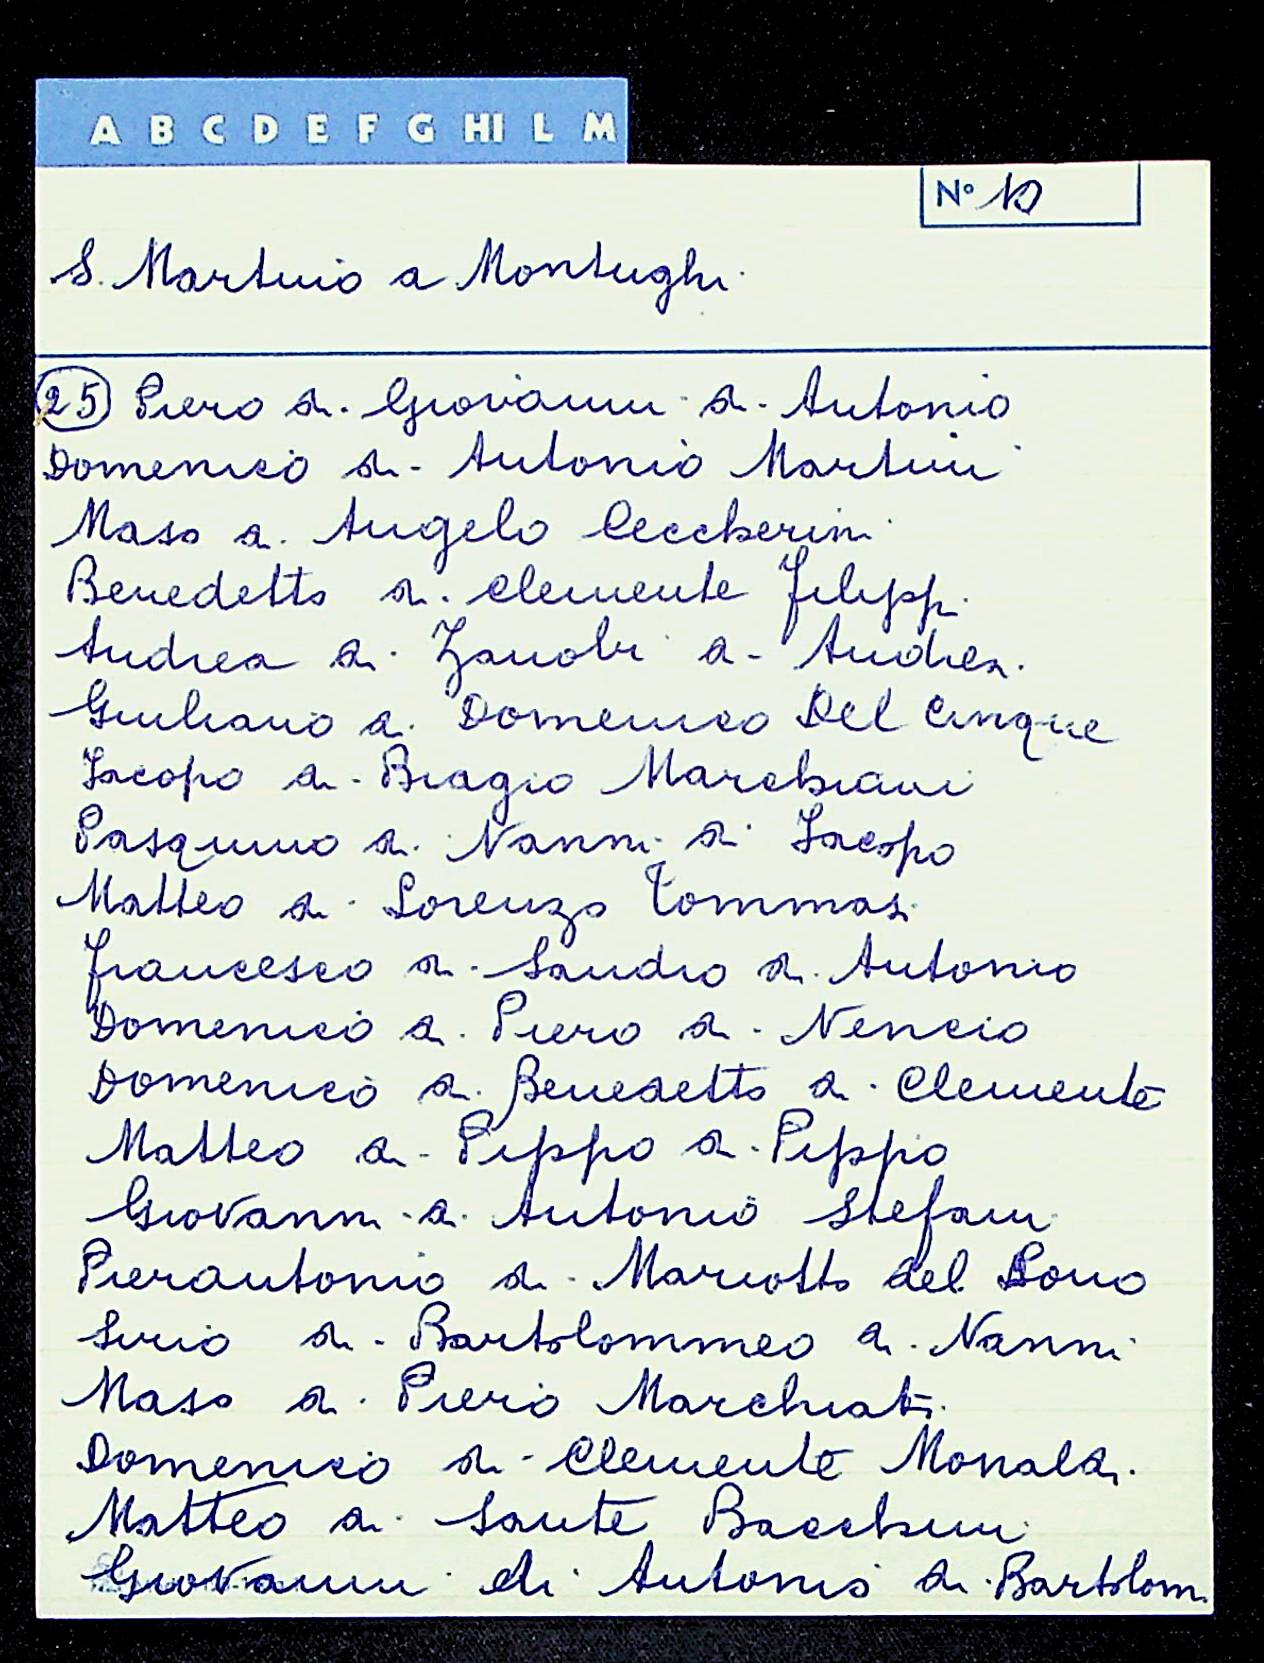 A B C D E F G HI L M
Nº 10
S. Martino a Montughi
25 Piero di Giovanni di Antonio
Domenico di Antonio Martini
Maso di Angelo Ceccherini
Benedetto di Clemente Filippi
Andrea di Zanobi di Andrea
Giuliano di Domenico Del Cinque
Iacopo di Biagio Marchiani
Pasquino di Nanni di Iacopo
Matteo di Lorenzo Tommasi
Francesco di Sandro di Antonio
Domenico di Piero di Nencio
Domenico di Benedetto di Clemente
Matteo di Pippo di Pippo
Giovanni di Antonio Stefani
Pierantonio di Mariotto del Bono
di Bartolommeo di Nanni
Maso di Piero Marchiati
Domenico di Clemente Monaldi
Matteo di Sante Bacchini
Giovanni di Antonio di Bartolom.